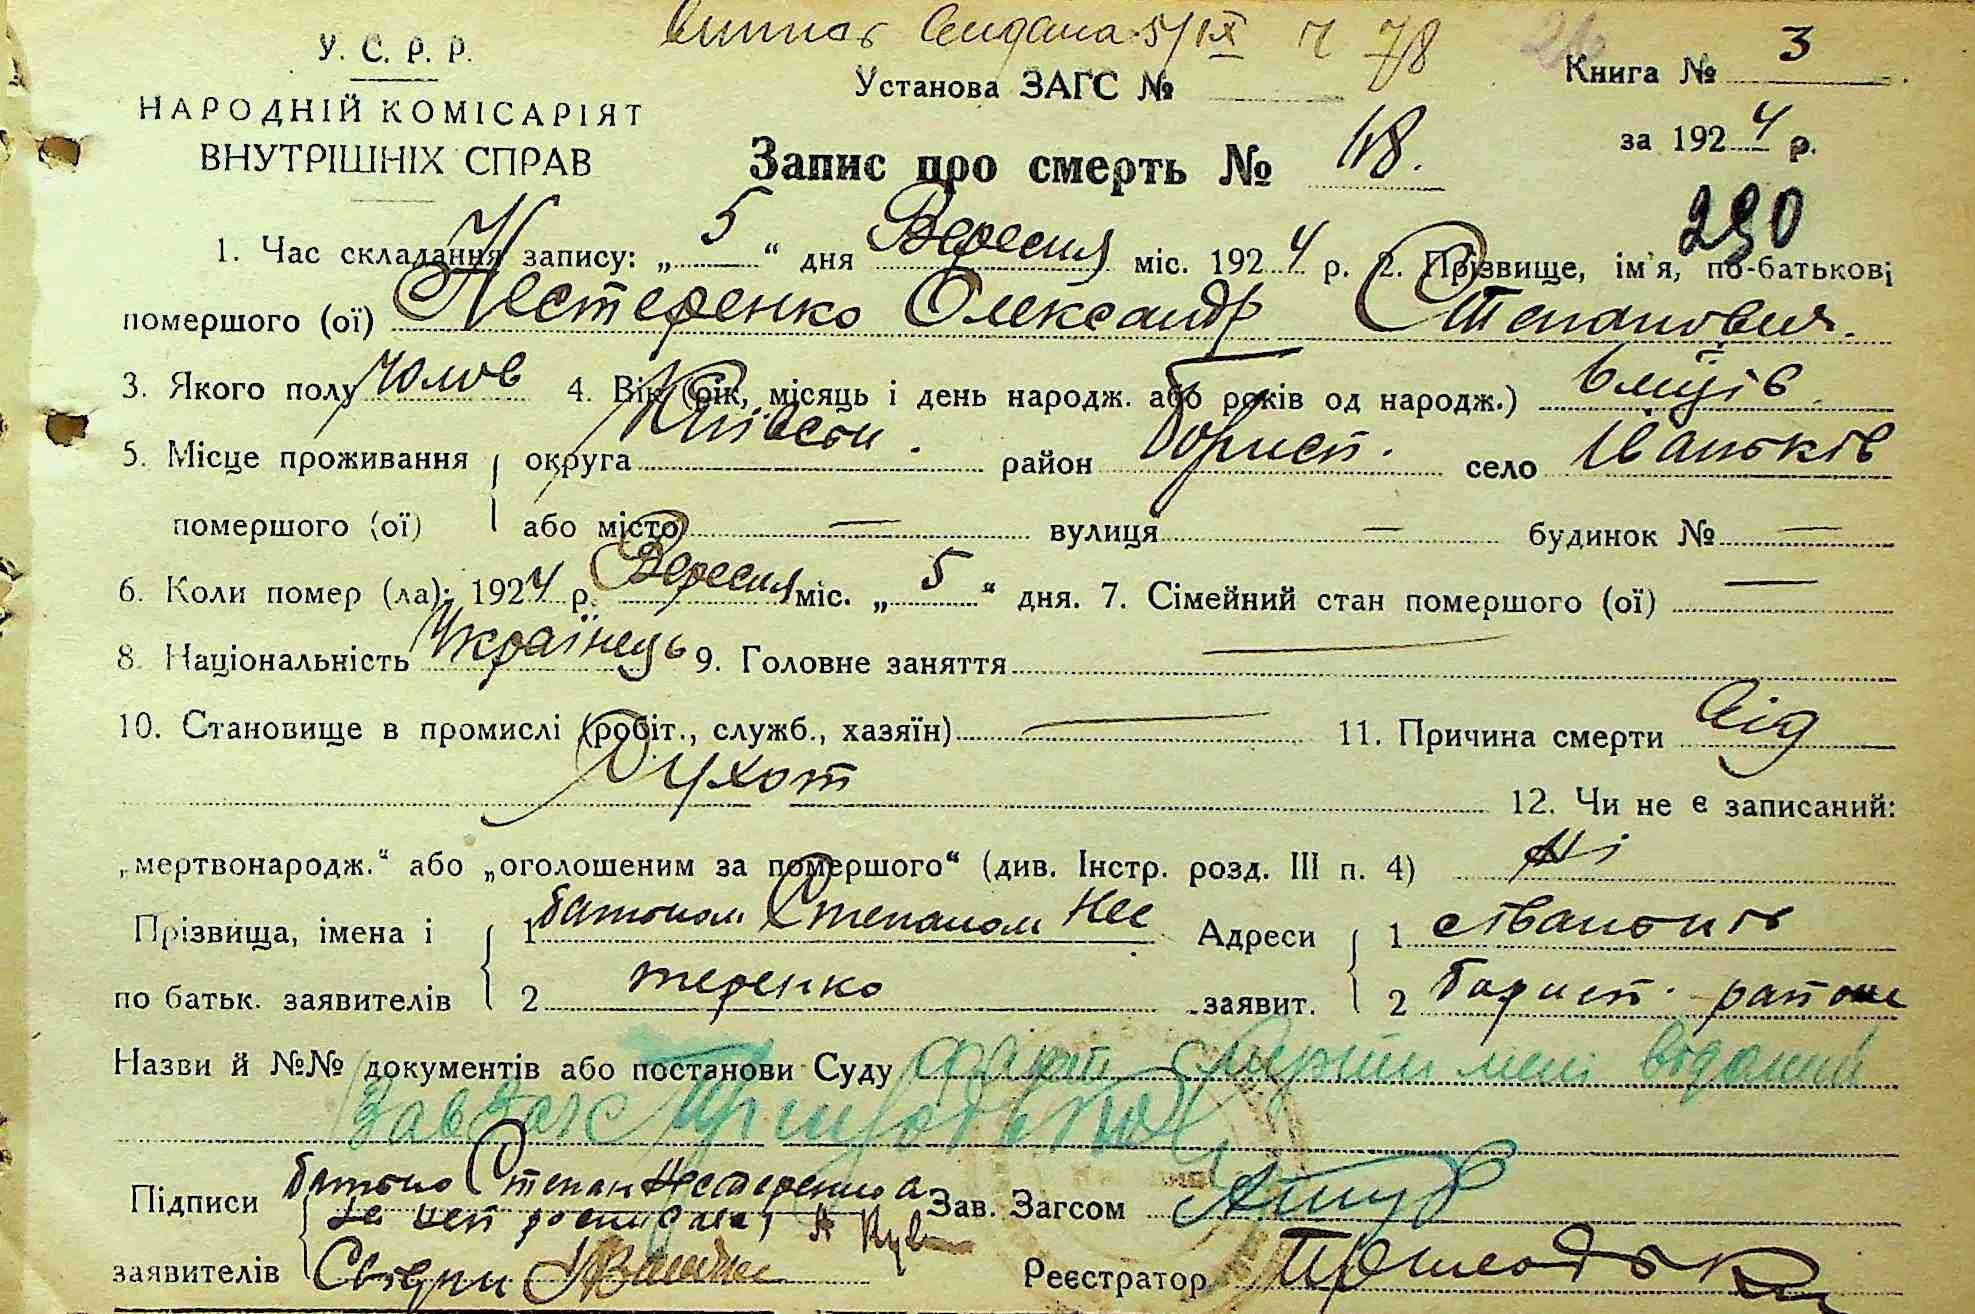 У. С. Р. Р.
НАРОДНІЙ КОМІСАРІЯТ
ВНУТРІШНІХ СПРАВ
5/IX 78
Установа ЗАГС №
Книга № 3
за 1924 р.
Запис про смерть № 118.
290
1. Час складання запису: „ 5 “ дня Вересня міс. 1924 р. 2. Прізвище, ім'я, по-батькові
помершого (ої) Нестеренко Олександр Степанович.
3. Якого полу чолов 4. Вік (рік, місяць і день народж. або років од народж.) 6 місців
5. Місце проживання округа Київськ. район Борисп. село Іваньків
помершого (ої) або місто — вулиця — будинок № —
6. Коли помер (ла): 1924 р. Вересня міс. „ 5 “ дня. 7. Сімейний стан помершого (ої) —
8. Національність Українець 9. Головне заняття —
10. Становище в промислі (робіт., служб., хазяїн) — 11. Причина смерти від
Сухот
12. Чи не є записаний:
„мертвонародж.“ або „оголошеним за помершого“ (див. Інстр. розд. III п. 4) Ні
Прізвища, імена і 1 батьком Степаном Нес Адреси 1 с Іваньків
по батьк. заявителів 2 теренко заявит. 2 Борисп. район
Назви й №№ документів або постанови Суду
Підписи батько Степан Нестеренко а Зав. Загсом
заявителів Реєстратор